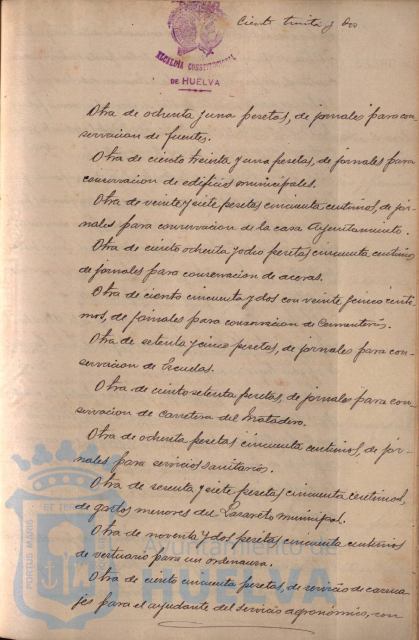 Ciento treinta y dos
ALCALDIA CONSTITUCIONAL
DE HUELVA
Otra de ochenta y una pesetas, de jornales para con
servacion de fuentes.
Otra de ciento treinta y una pesetas, de jornales para
conservacion de edificios municipales.
Otra de veinte y siete pesetas cincuenta centimos, de jor-
nales para conservacion de la casa Ayuntamiento.
Otra de ciento ochenta y ocho pesetas cincuenta centimos,
de jornales para conservacion de aceras.
Otra de ciento cincuenta y dos con veinte y cinco centi-
mos, de jornales para conservacion de Cementerios.
Otra de setenta y cinco pesetas, de jornales para con-
servacion de Escuelas.
Otra de ciento setenta pesetas, de jornales para con-
servacion de carretera del Matadero.
Otra de ochenta pesetas cincuenta centimos, de jor-
nales para servicios sanitarios.
Otra de sesenta y siete pesetas cincuenta centimos,
de gastos menores del Lazareto municipal.
Otra de noventa y dos pesetas cincuenta centimos
de vestuario para un ordenanza.
Otra de ciento cincuenta pesetas, de servicio de carrua-
jes para el ayudante del servicio agronómico, con
PORTUS MARIS
Ayuntamiento de
HUELVA